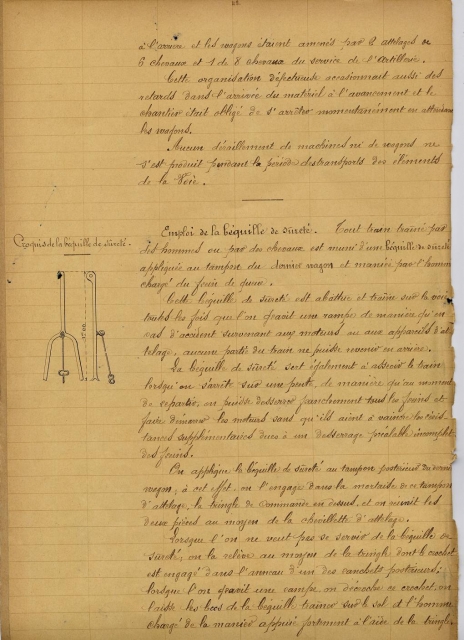 à l'arrière et les wagons étaient amenés par 2 attelages de
5 chevaux et 1 de 8 chevaux du service de l'Artillerie.
Cette organisation défectueuse occasionnait aussi des
retards dans l'arrivée du matériel à l'avancement et le
chantier était obligé de s'arrêter momentanément en attendant
les wagons.
Aucun déraillement de machines ni de wagons ne
s'est produit pendant la période des transports des éléments
de la Voie.
Emploi de la béquille de sûreté. Tout train traîné par
Croquis de la béquille de sûreté.
des hommes ou par des chevaux est muni d'une béquille de sûreté
appliquée au tampon du dernier wagon et maniée par l'homme
chargé du frein de queue.
Cette béquille de sûreté est abattue et traîne sur la voie
toutes les fois que l'on gravit une rampe de manière qu'en
cas d'accident survenant aux moteurs ou aux appareils d'at-
telage, aucune partie du train ne puisse revenir en arrière.
La béquille de sûreté sert également à asseoir le train
lorsqu'on s'arrête sur une pente, de manière qu'au moment
de repartir, on puisse desserrer franchement tous les freins et
faire démarrer les moteurs sans qu'ils aient à vaincre les résis-
tances supplémentaires dues à un desserrage préalable incomplet
des freins.
On applique la béquille de sûreté au tampon postérieur du dernier
wagon, à cet effet, on l'engage dans la mortaise de ce tampon
d'attelage, la tringle de commande en dessus, et on réunit les
deux pièces au moyen de la chevillette d'attelage.
Lorsque l'on ne veut pas se servir de la béquille de
sûreté, on la relève au moyen de la tringle dont le crochet
est engagé dans l'anneau d'un des ranchets postérieurs;
lorsque l'on gravit une rampe, on décroche ce crochet, on
laisse les becs de la béquille traîner sur le sol et l'homme
chargé de la manier appuie fortement à l'aide de la tringle